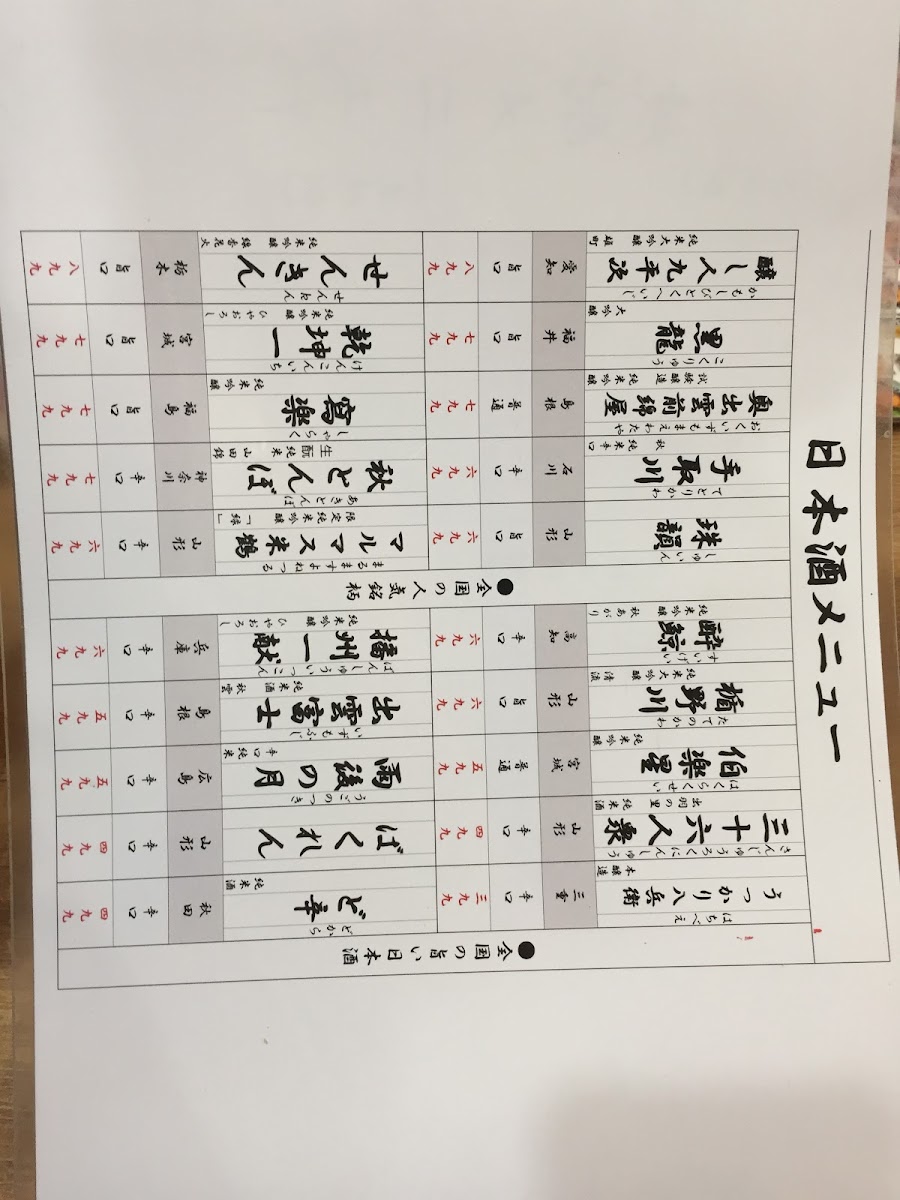 日本酒メニュー
●全国の旨い日本酒
はちべえ
うっかり八兵衛
本醸造
三重
辛口
三九九
さんじゅうろくにんしゅう
三十六人衆
出羽の里 純米酒
山形
辛口
四九九
はくらくせい
伯楽星
純米吟醸
宮城
普通
五九九
たてのかわ
楯野川
純米大吟醸 清流
山形
旨口
六九九
すいげい
酔鯨
純米吟醸 秋あがり
高知
辛口
六九九
どから
ど辛
純米酒
秋田
辛口
四九九
ばくれん
山形
辛口
四九九
うごのつき
雨後の月
辛口純米
広島
辛口
五九九
いずもふじ
出雲富士
純米酒 秋雲
島根
辛口
五九九
ばんしゅういっこん
播州一献
純米吟醸 ひやおろし
兵庫
辛口
六九九
●全国の人気銘柄
しゅいん
珠韻
山形
旨口
六九九
てどりかわ
手取川
秋 純米辛口
石川
辛口
六九九
おくいずもまえわたや
奥出雲前綿屋
試験醸造 純米吟醸
島根
普通
七九九
こくりゅう
黒龍
大吟醸
福井
旨口
七九九
かもしびとくへいじ
醸し人九平次
純米大吟醸 雄町
愛知
旨口
八九九
まるますよねつる
マルマス米鶴
限定純米吟醸 「緑」
山形
辛口
六九九
あきとんぼ
秋とんぼ
生酛純米 山田錦
神奈川
辛口
七九九
しゃらく
寫楽
純米吟醸
福島
旨口
七九九
けんこんいち
乾坤一
純米吟醸 ひやおろし
宮城
旨口
七九九
せんきん
せんきん
純米吟醸 線香花火
栃木
旨口
八九九